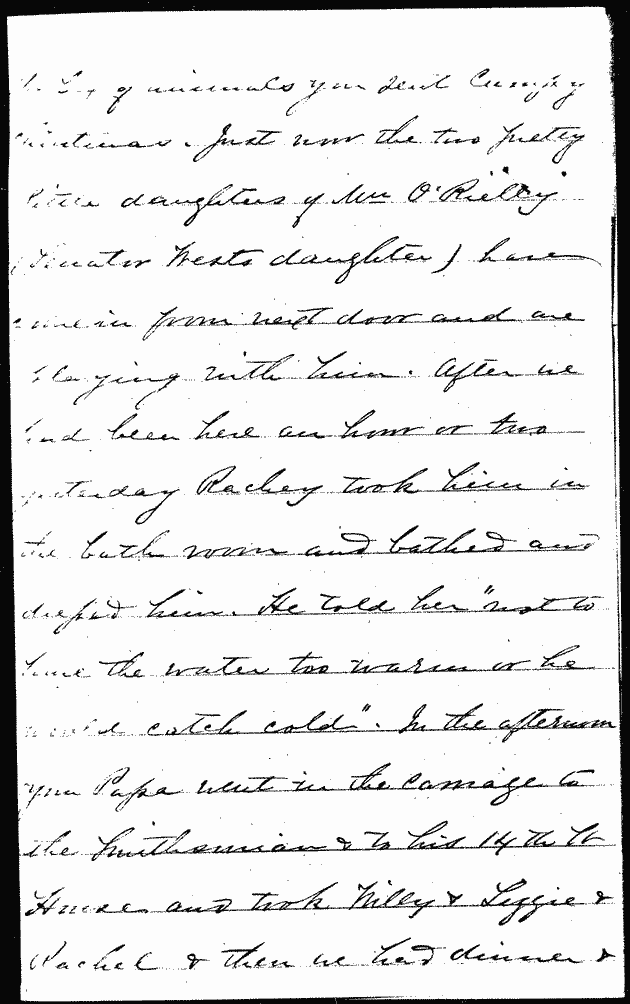 of animals you sent Cumpy
Christmas. Just now the two pretty
little daughters of Mrs O'Rielly
(Senator Wests daughter) have
come in from next door and are
playing with him. After we
had been here an hour or two
yesterday Rachey took him in
the bath room and bathed and
him. He told her "not to
have the water too warm or he
would catch cold". In the afternoon
your Papa went in the carriage to
the Smithsonian & to his 14th St
Houses and took Willy & Lizzie &
Rachel & then we had dinner &